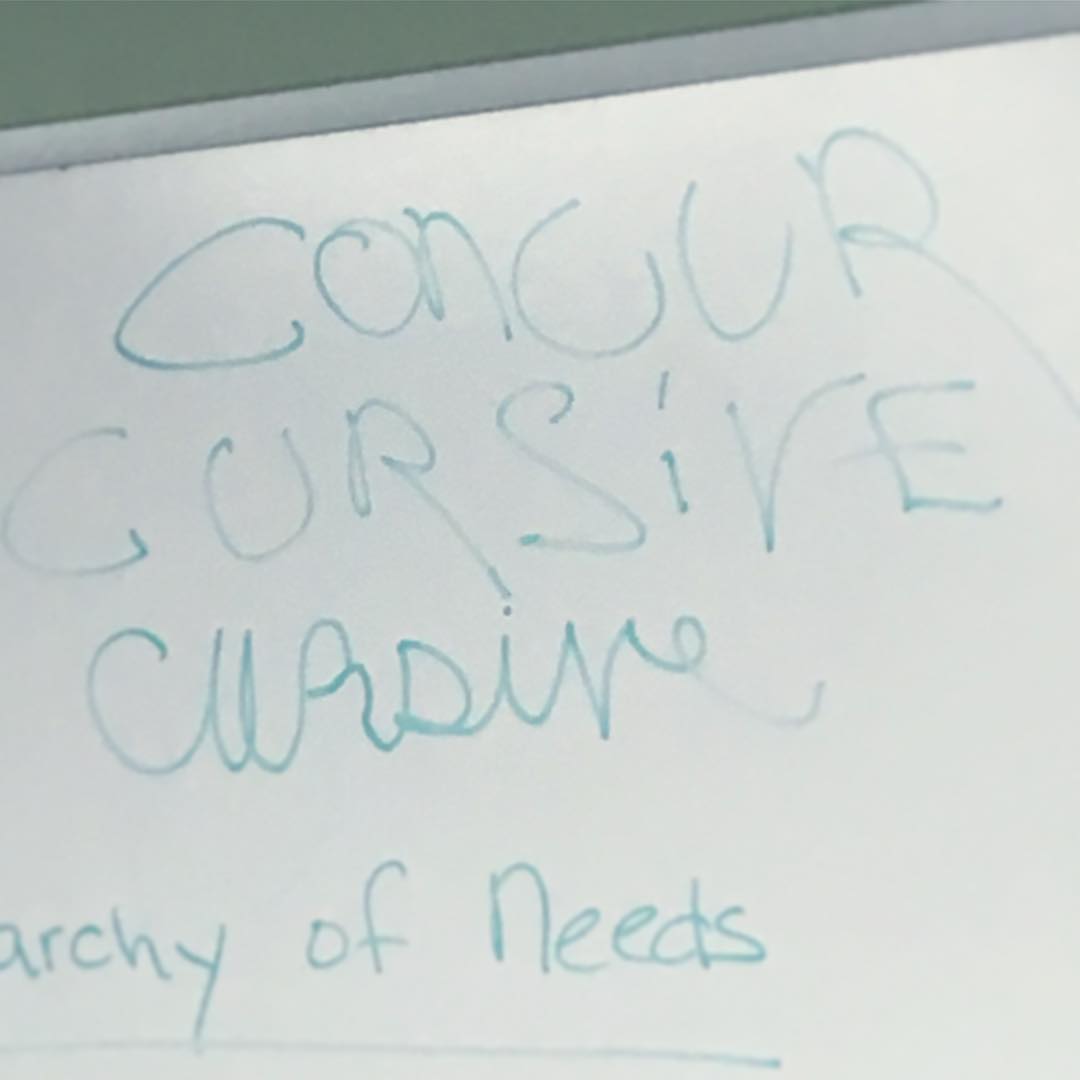 CONCUR
CURSiVE
cursive
archy of Needs